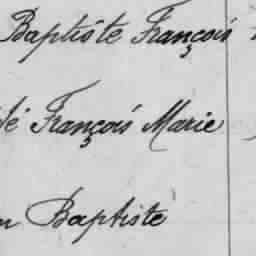 Baptiste François
François Marie
Baptiste